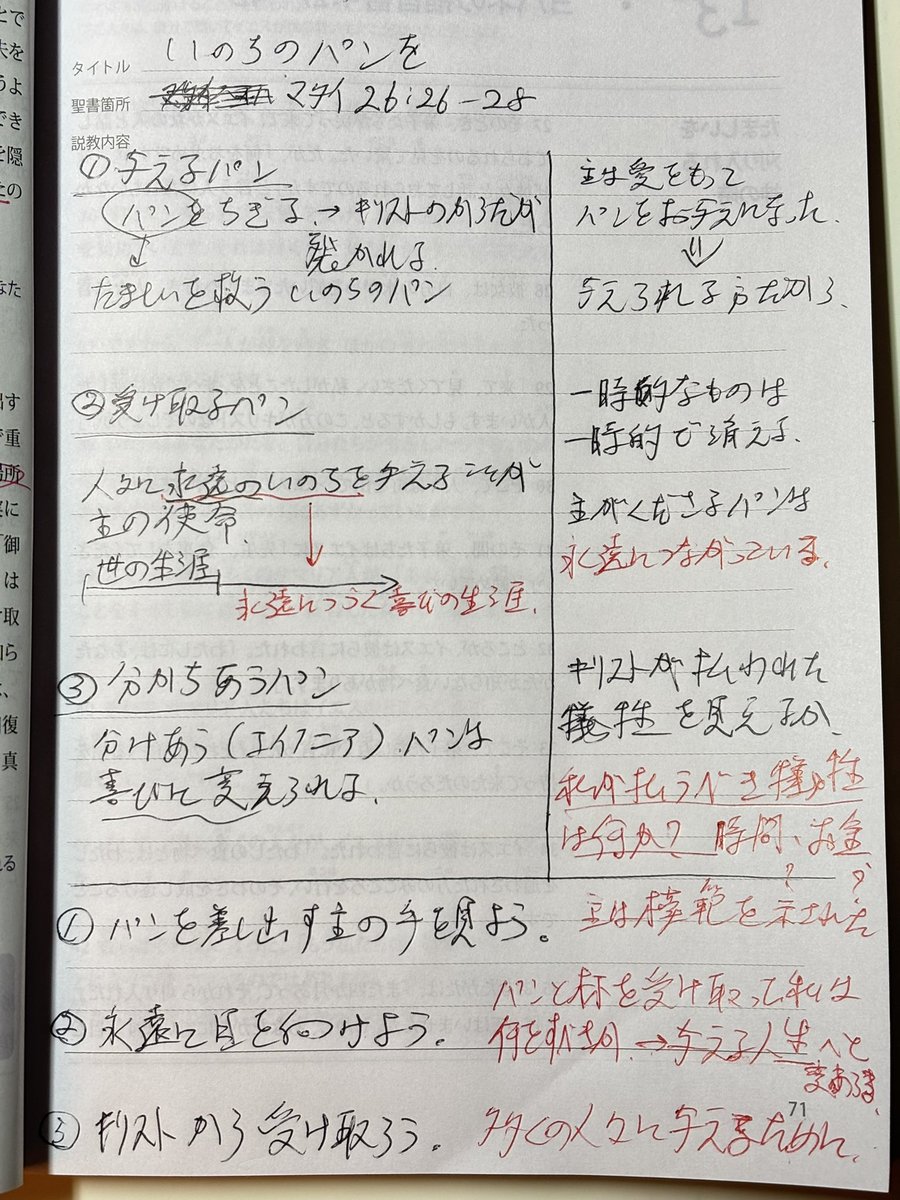 タイトル いのちのパンを
聖書箇所 マタイ 26:26-28
説教内容
① 与えるパン
パンをちぎる→キリストのからだが
裂かれる.
たましいを救う いのちのパン
② 受け取るパン
人々に永遠のいのちを与えることが
主の使命.
世の生涯
永遠につづく喜びの生涯.
③ 分かちあうパン
分けあう(コイノニア).パンは
喜びに変えられる.
主は愛をもって
パンをお与えになった.
⇓
与えられる方だから.
一時的なものは
一時的で消える.
主がくださるパンは
永遠につながっている.
キリストが払われた
犠牲を見えるか.
私が払うべき犠牲
は何か? 時間、お金
? ?
主は模範を示された
① パンを差し出す主の手を見よう。
② 永遠に目をつけよう。
③ キリストから受け取ろう。
パンと杯を受け取って私は
何をすべきか.→与える人生へと
多くの人々に与えるために.
71